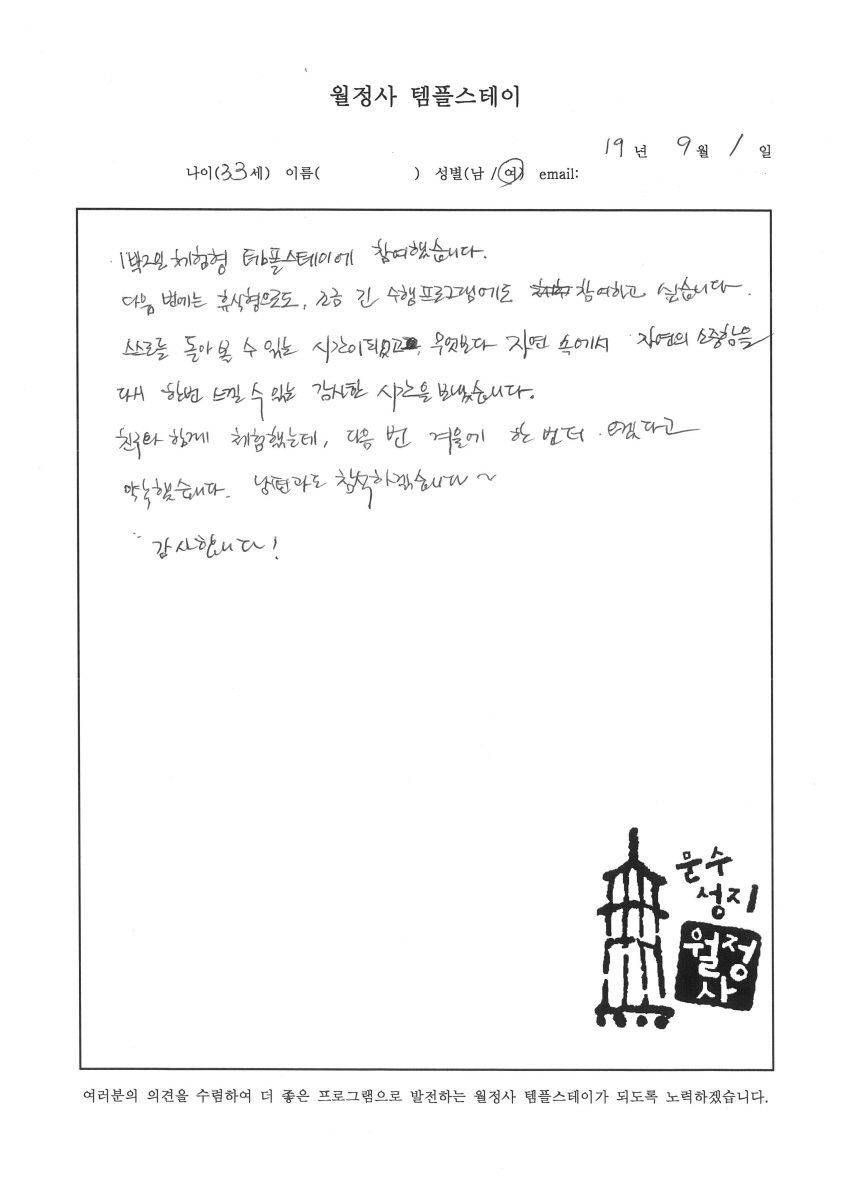 월정사 템플스테이
19년 9월 1일
나이(33세) 이름( ) 성별(남/여) email:
1박2일 체험형 템플스테이에 참여했습니다.
다음 번에는 휴식형으로도, 조금 긴 수행프로그램에도 참여하고 싶습니다.
스스로를 돌아 볼 수 있는 시간이 되었고, 무엇보다 자연 속에서 자연의 소중함을
다시 한번 느낄 수 있는 감사한 시간을 보냈습니다.
친구와 함께 체험했는데, 다음 번 겨울에 한 번 더 오겠다고
약속했습니다. 남편과도 참석하겠습니다~
감사합니다!
문수
성지
월정
사
여러분의 의견을 수렴하여 더 좋은 프로그램으로 발전하는 월정사 템플스테이가 되도록 노력하겠습니다.